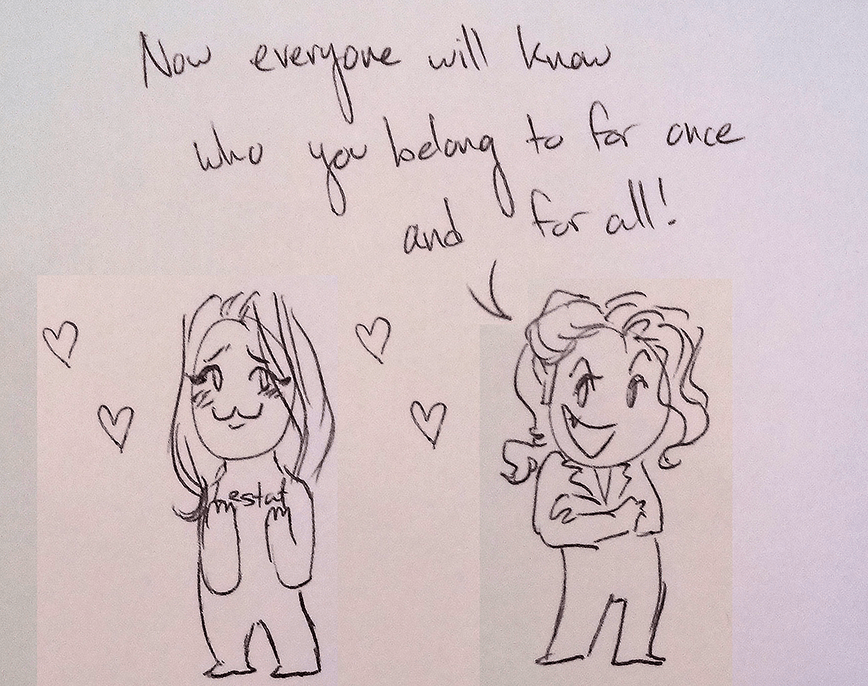 Now everyone will know
who you belong to for once
and for all!
Lestat